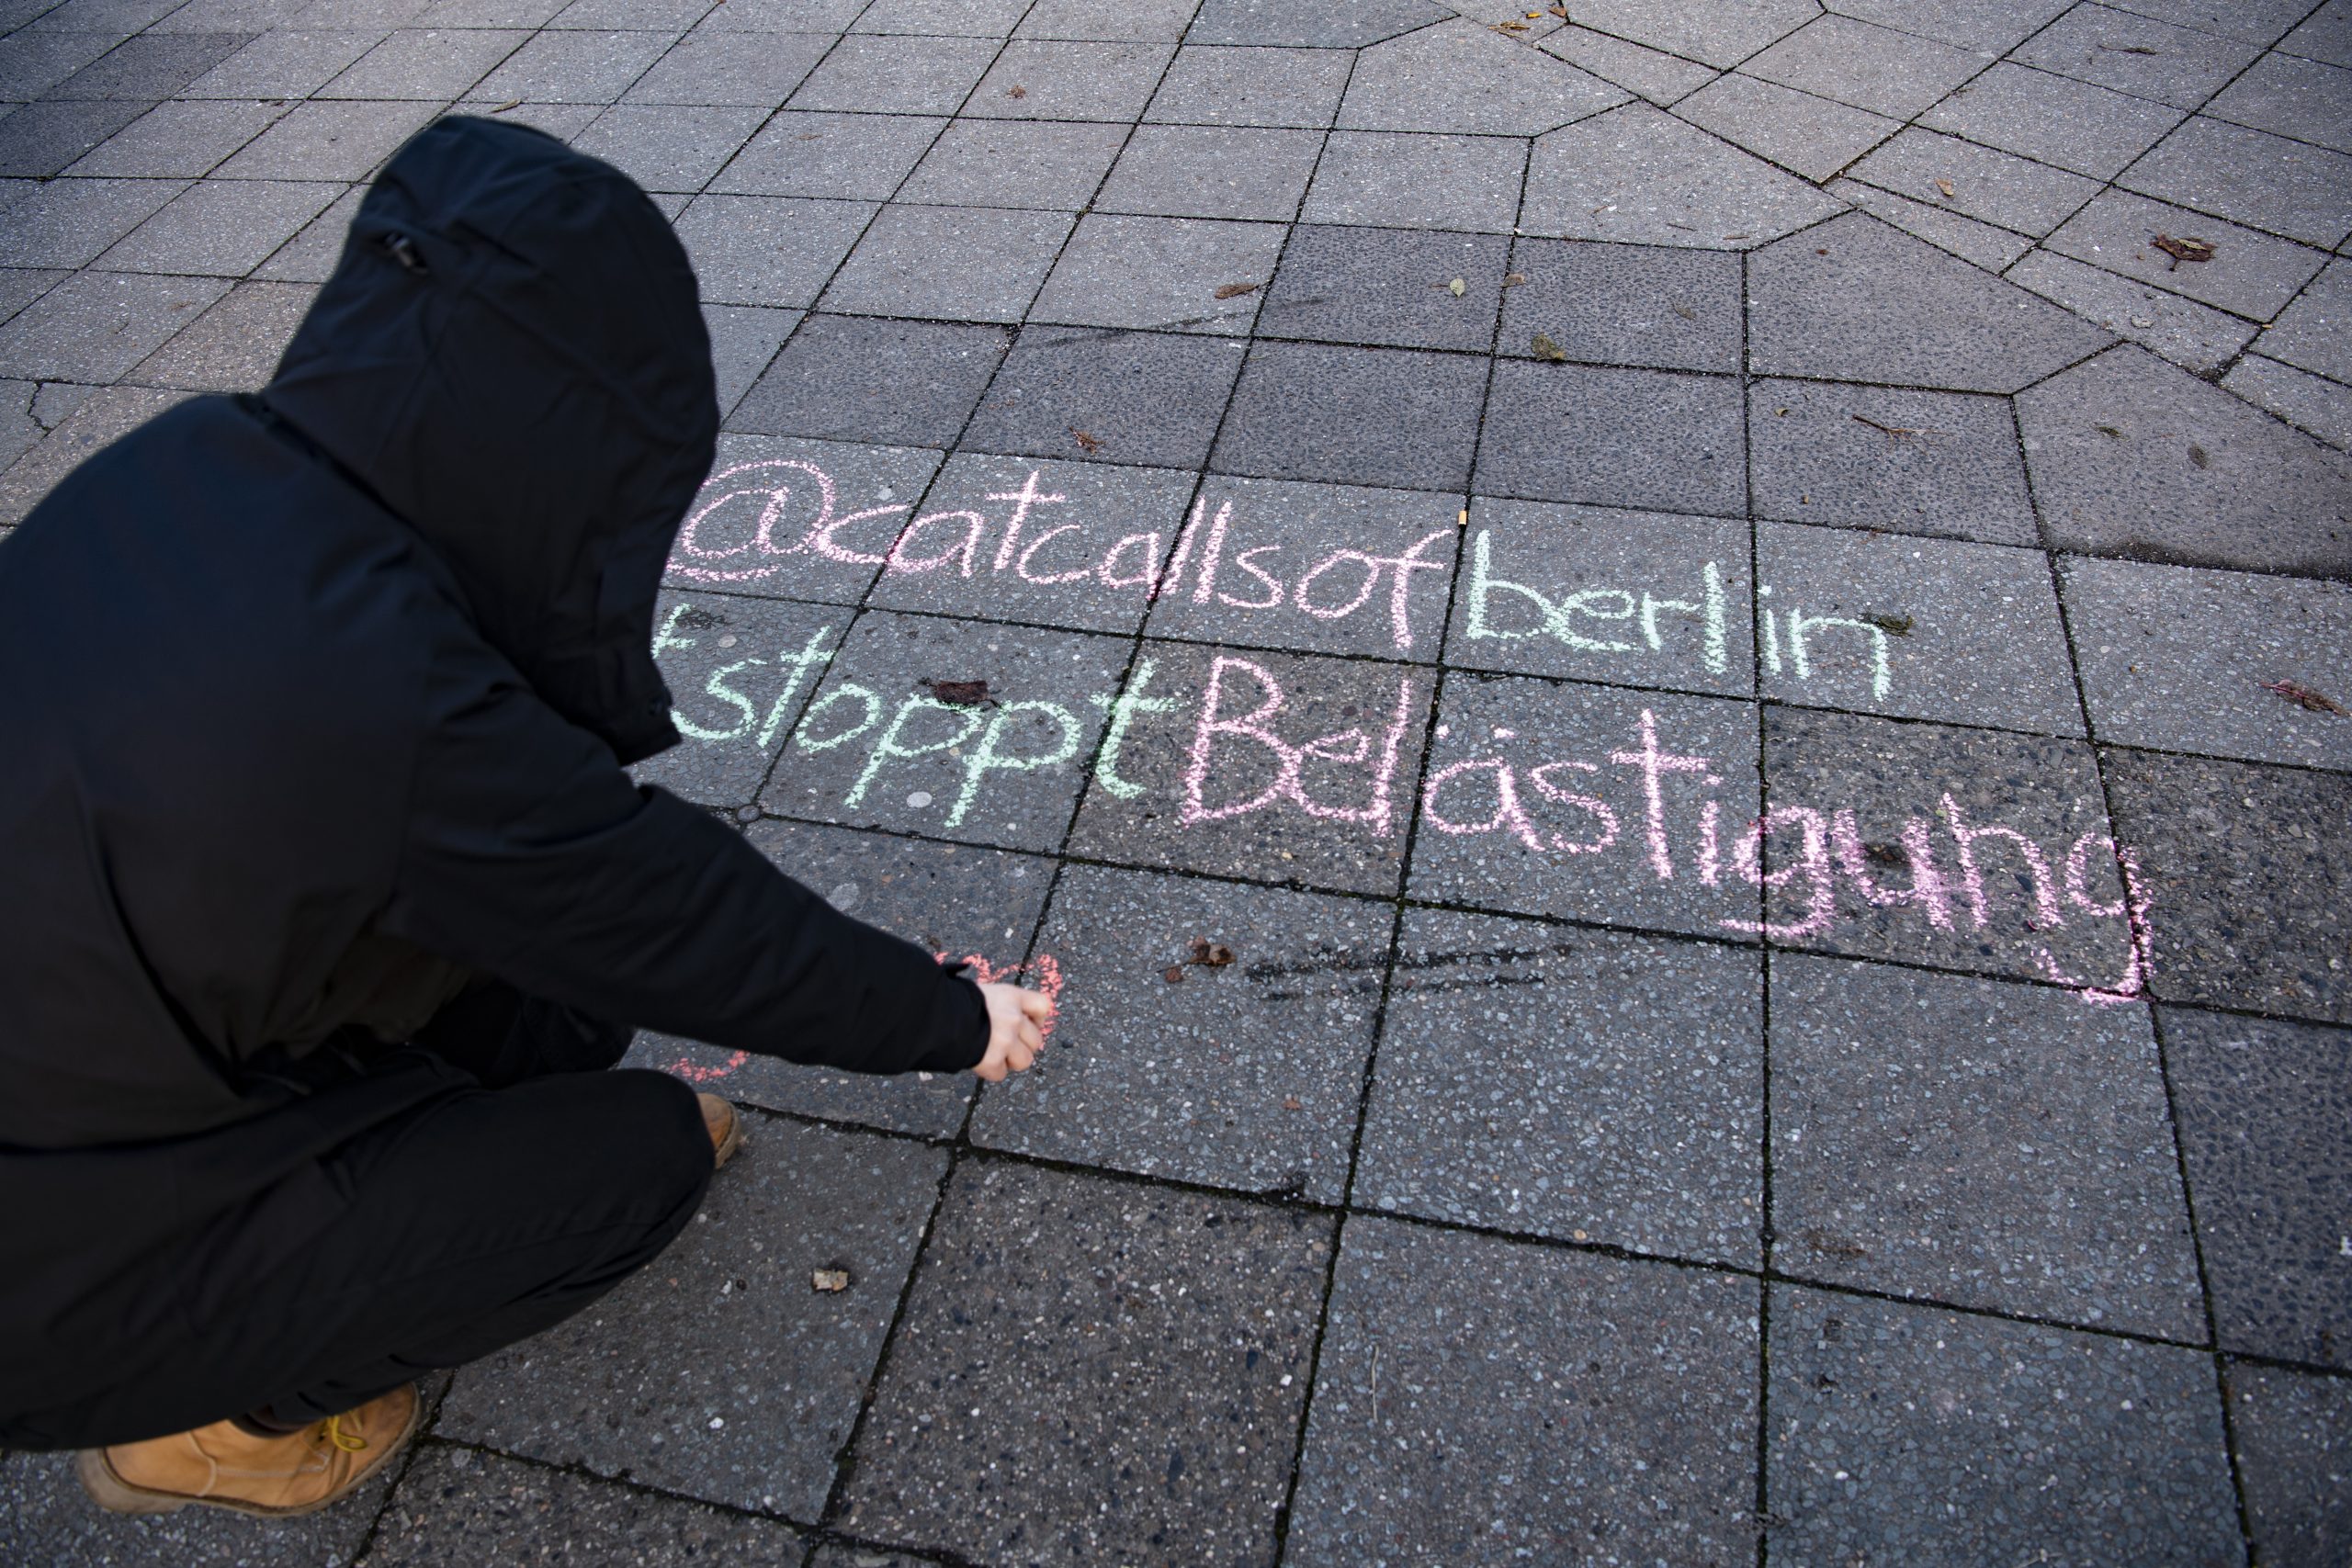 @catcallsofberlin
#stoppt Belästigung